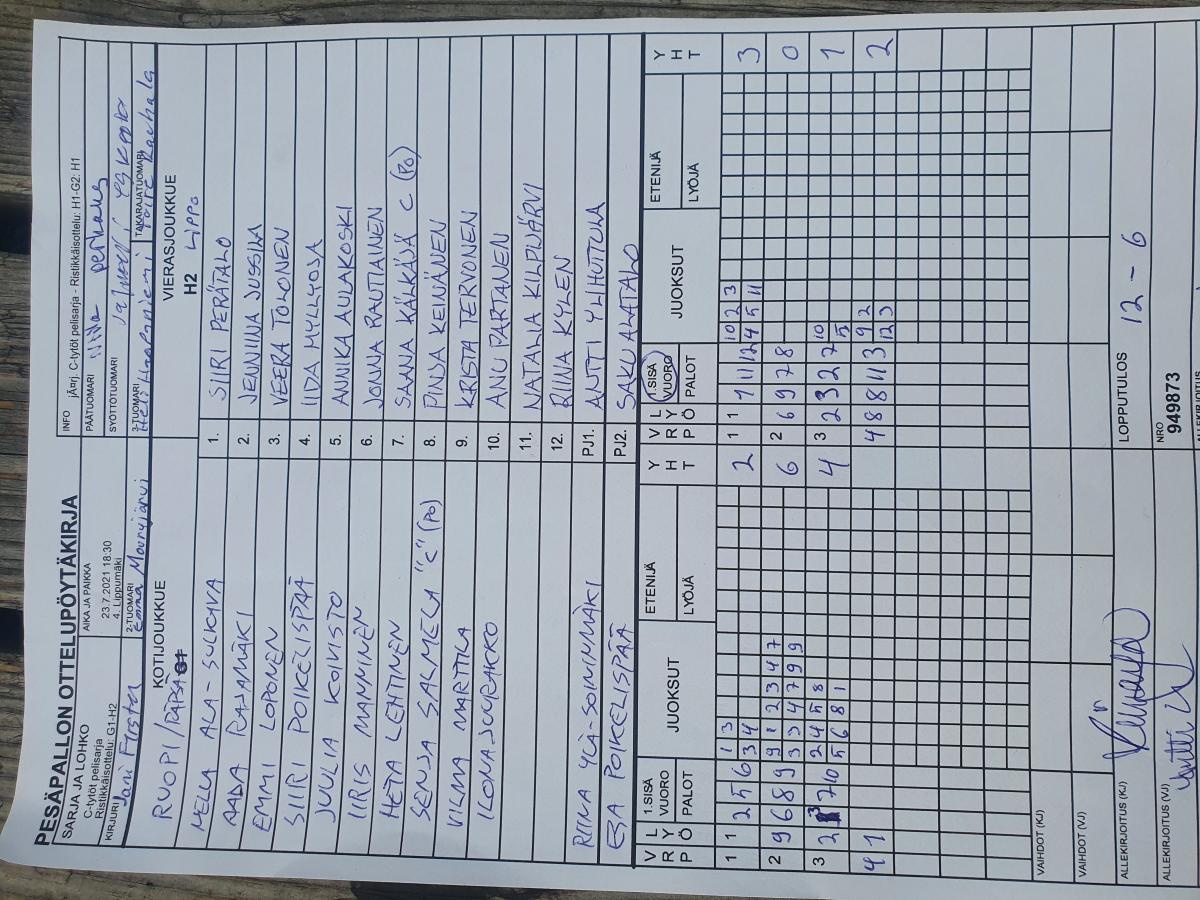 PESÄPALLON OTTELUPÖYTÄKIRJA
SARJA JA LOHKO
C-tytöt pelisarja
Ristikkäisottelu: G1-H2
AIKA JA PAIKKA
23.7.2021 18:30
4. Lippumäki
INFO jÄ¤rj. C-tytöt pelisarja - Ristikkäisottelu: H1-G2: H1
PÄÄTUOMARI
SYÖTTÖTUOMARI
KIRJURI Jani
2-TUOMARI Emma Mourujärvi
3-TUOMARI Heli Haapaniemi
TAKARAJATUOMARI
KOTIJOUKKUE
RUOPI/PÄPSÄ G1
VIERASJOUKKUE
H2 LIPPO
MELLA ALA-SULKAVA 1. SIIRI PERÄTALO
AADA RAJAMÄKI 2. JENNIINA JUSSILA
EMMI LOPONEN 3. VEERA TOLONEN
SIIRI POIKELISPÄÄ 4. IIDA MYLLYOJA
JUULIA KOIVISTO 5. ANNIKA AULAKOSKI
IIRIS MANNINEN 6. JONNA RAUTIAINEN
HETA LEHTINEN 7. SAANA KÄRKÄSÄ C (PO)
SENJA SALMELA "C" (PO) 8. PINJA KEINÄNEN
VILMA MARTTILA 9. KRISTA TERVONEN
ILONA JUURAKKO 10. ANU PARTANEN
11. NATALIA KILPIJÄRVI
12. RIINA KYLEN
RIINA YLÄ-SOININMÄKI PJ1. ANTTI YLIHUTTULA
ESA POIKELISPÄÄ PJ2. SAKU ALATALO
VRP LYÖ 1.SISÄVUORO PALOT JUOKSUT ETENIJÄ LYÖJÄ YHT VRP LYÖ 1.SISÄVUORO PALOT JUOKSUT ETENIJÄ LYÖJÄ YHT
1 1 2 5 6 1 3 2 1 1 7 11 12 10 2 3 3
3 4 4 5 11
2 9 6 8 9 9 1 2 3 4 7 6 2 6 9 7 8 0
3 3 4 7 9 9
3 2 3 7 10 2 4 5 8 4 3 2 3 2 7 10 1
5 6 8 1 5
4 1 4 8 8 11 3 9 2 2
12 3
VAIHDOT (KJ)
VAIHDOT (VJ)
ALLEKIRJOITUS (KJ)
LOPPUTULOS 12 - 6
ALLEKIRJOITUS (VJ)
NRO
949873
ALLEKIRJOITUS